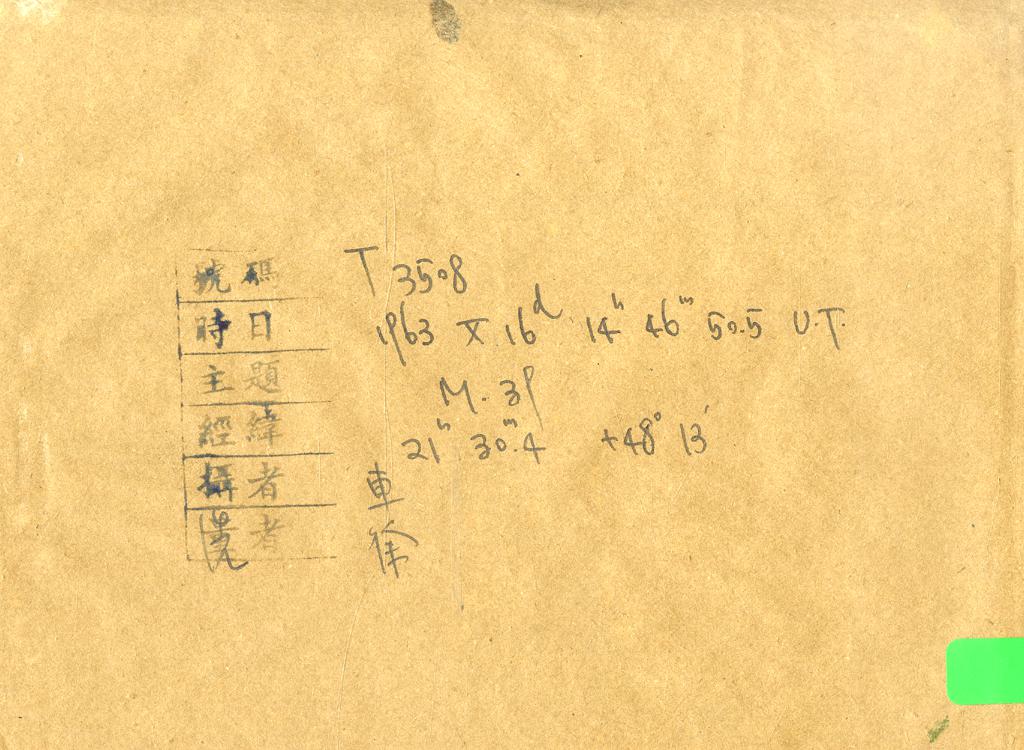 號碼 T 3508
時日 1963 X 16ᵈ 14ʰ 46ᵐ 50.5 U.T.
主題 M. 39
經緯 21ʰ 30ᵐ.4 +48° 13′
攝者 車
者 徐